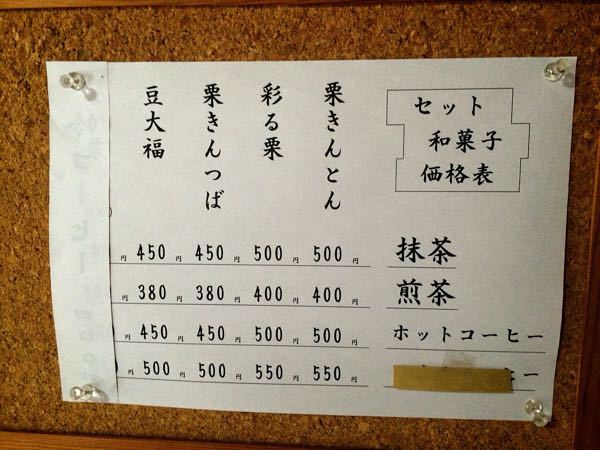 セット
和菓子
価格表
栗きんとん
彩る栗
栗きんつば
豆大福
抹茶 500円 500円 450円 450円
煎茶 400円 400円 380円 380円
ホットコーヒー 500円 500円 450円 450円
ー 550円 550円 500円 500円